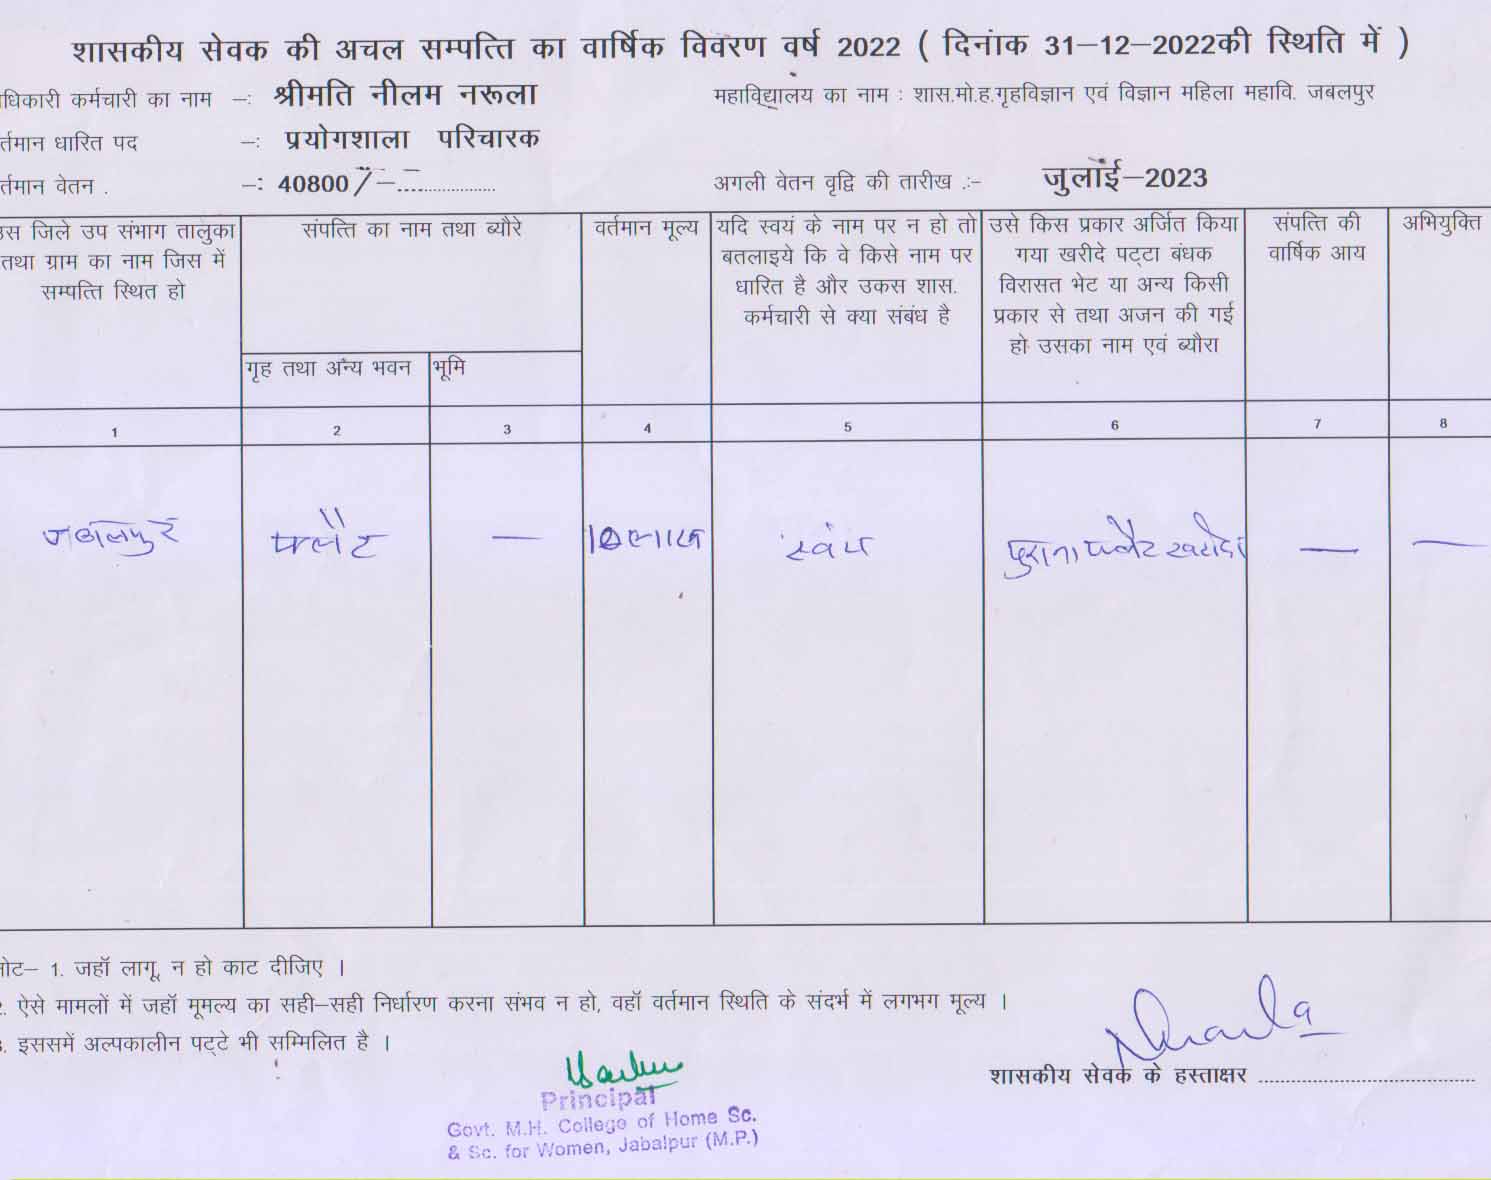 शासकीय सेवक की अचल सम्पत्ति का वार्षिक विवरण वर्ष 2022 ( दिनांक 31–12–2022की स्थिति में )
धिकारी कर्मचारी का नाम –: श्रीमति नीलम नरूला महाविद्यालय का नाम : शास.मो.ह.गृहविज्ञान एवं विज्ञान महिला महावि. जबलपुर
र्तमान धारित पद –: प्रयोगशाला परिचारक
र्तमान वेतन . –: 40800/–.................... अगली वेतन वृद्वि की तारीख .:– जुलाई–2023
उस जिले उप संभाग तालुका
तथा ग्राम का नाम जिस में
सम्पत्ति स्थित हो
संपत्ति का नाम तथा ब्यौरे
गृह तथा अन्य भवन
भूमि
वर्तमान मूल्य
यदि स्वयं के नाम पर न हो तो
बतलाइये कि वे किसे नाम पर
धारित है और उकस शास.
कर्मचारी से क्या संबंध है
उसे किस प्रकार अर्जित किया
गया खरीदे पट्टा बंधक
विरासत भेट या अन्य किसी
प्रकार से तथा अजन की गई
हो उसका नाम एवं ब्यौरा
संपत्ति की
वार्षिक आय
अभियुक्ति
1 2 3 4 5 6 7 8
जबलपुर फ्लैट — 10लाख स्वंय पुराना फ्लैट खरीदा — —
नोट– 1. जहॉ लागू, न हो काट दीजिए ।
2. ऐसे मामलों में जहॉ मूमल्य का सही–सही निर्धारण करना संभव न हो, वहॉ वर्तमान स्थिति के संदर्भ में लगभग मूल्य ।
3. इससमें अल्पकालीन पट्टे भी सम्मिलित है ।
शासकीय सेवक के हस्ताक्षर ....................................
Principal
Govt. M.H. College of Home Sc.
& Sc. for Women, Jabalpur (M.P.)